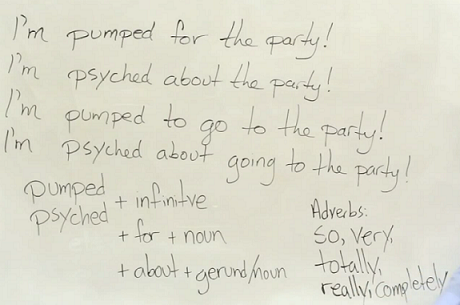 I'm pumped for the party!
I'm psyched about the party!
I'm pumped to go to the party!
I'm psyched about going to the party!
pumped
psyched + infinitve
+ for + noun
+ about + gerund/noun
Adverbs:
so, very,
totally,
really, completely